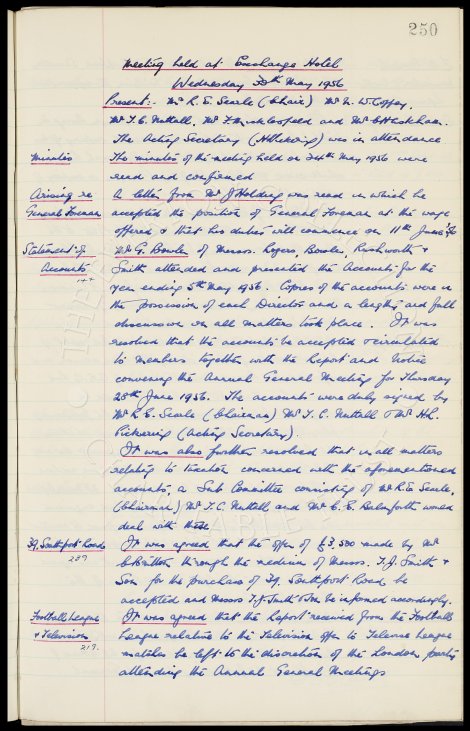 250
Meeting held at Exchange Hotel
Wednesday 30th May 1956
Present:- Mr R. E. Searle (Chair) Mr N. W. Coffey,
Mr T. C. Nuttall, Mr F. and Mr
The Acting Secretary (H. Pickering) was in attendance
Minutes The minutes of the meeting held on 24th May 1956 were
read and confirmed
Arising re A letter from Mr J Holding was read in which he
General Foreman accepted the position of General Foreman at the wage
offered & that his duties will commence on 11th June 56
Statement of Mr G. Bowler of Messrs. Rogers, Bowler, Rushworth &
Accounts Smith attended and presented the Accounts for the
144 year ending 5th May 1956. Copies of the accounts were in
the possession of each Director and a lengthy and full
discussion on all matters took place. It was
resolved that the accounts be accepted & circulated
to members together with the Report and Notice
convening the Annual General Meeting for Thursday
28th June 1956. The accounts were duly signed by
Mr R. E. Searle (Chairman) Mr T. C. Nuttall & Mr H.
Pickering (Acting Secretary).
It was also further resolved that in all matters
relating to taxation concerned with the aforementioned
accounts, a Sub Committee consisting of Mr R. E. Searle,
(Chairman) Mr T. C. Nuttall and Mr C. E. Balmforth would
deal with these
39, Southport Road It was agreed that the offer of £3,500 made by Mr
239 Britton through the medium of Messrs. T. J. Smith &
Son for the purchase of 39, Southport Road be
accepted and Messrs T. J. Smith & Son be informed accordingly.
Football League It was agreed that the Report received from the Football
& Television League relative to the Television offer to Televise League
217. matches be left to the discretion of the London party
attending the Annual General Meetings